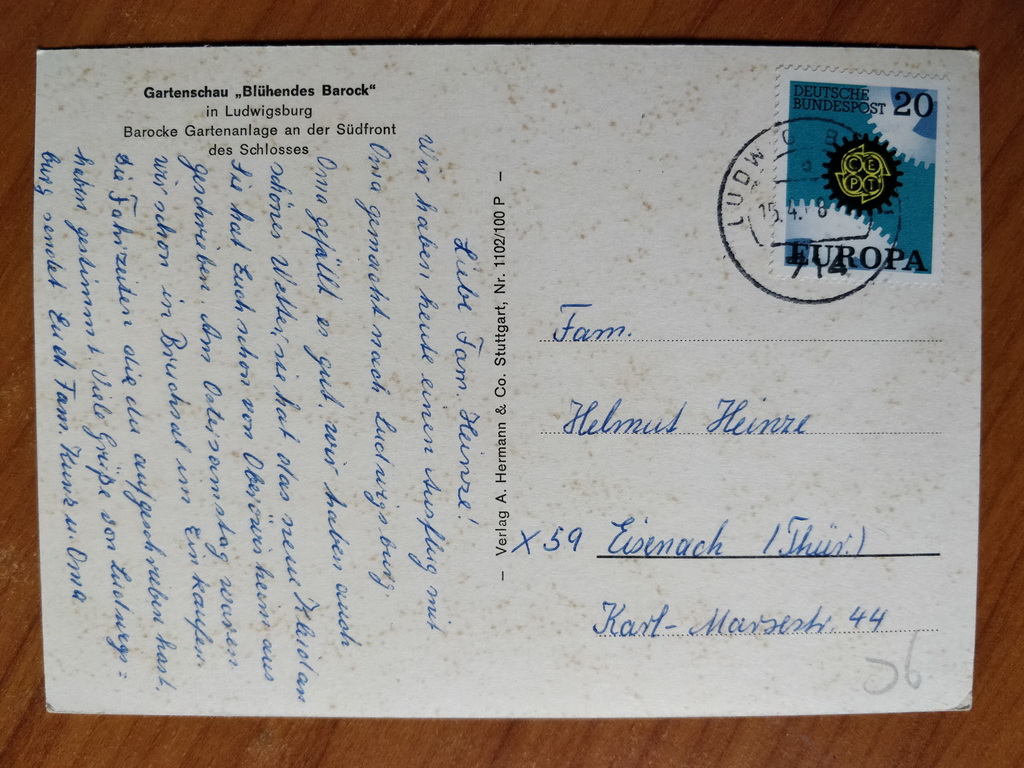 Gartenschau „Blühendes Barock“
in Ludwigsburg
Barocke Gartenanlage an der Südfront
des Schlosses
Liebe Fam. Heinze!
Wir haben heute einen Ausflug mit
Oma gemacht nach Ludwigsburg.
Oma gefällt es gut, wir haben auch
schönes Wetter, sie hat das neue Kleid an
Sie hat Euch schon von Oberöwisheim aus
geschrieben. Am Ostersamstag waren
wir schon in Bruchsal um Einkaufen
die Fahrzeiten die du aufgeschrieben hast.
haben gestimmt. Viele Grüße von Ludwigs=
burg sendet Euch Fam. Kunz u. Oma
– Verlag A. Hermann & Co. Stuttgart, Nr. 1102/100 P –
DEUTSCHE
BUNDESPOST 20
CEPT
EUROPA
LUDWIGSB
15.4. 8
714
Fam.
Helmut Heinze
X 59 Eisenach (Thür.)
Karl-Marxestr. 44